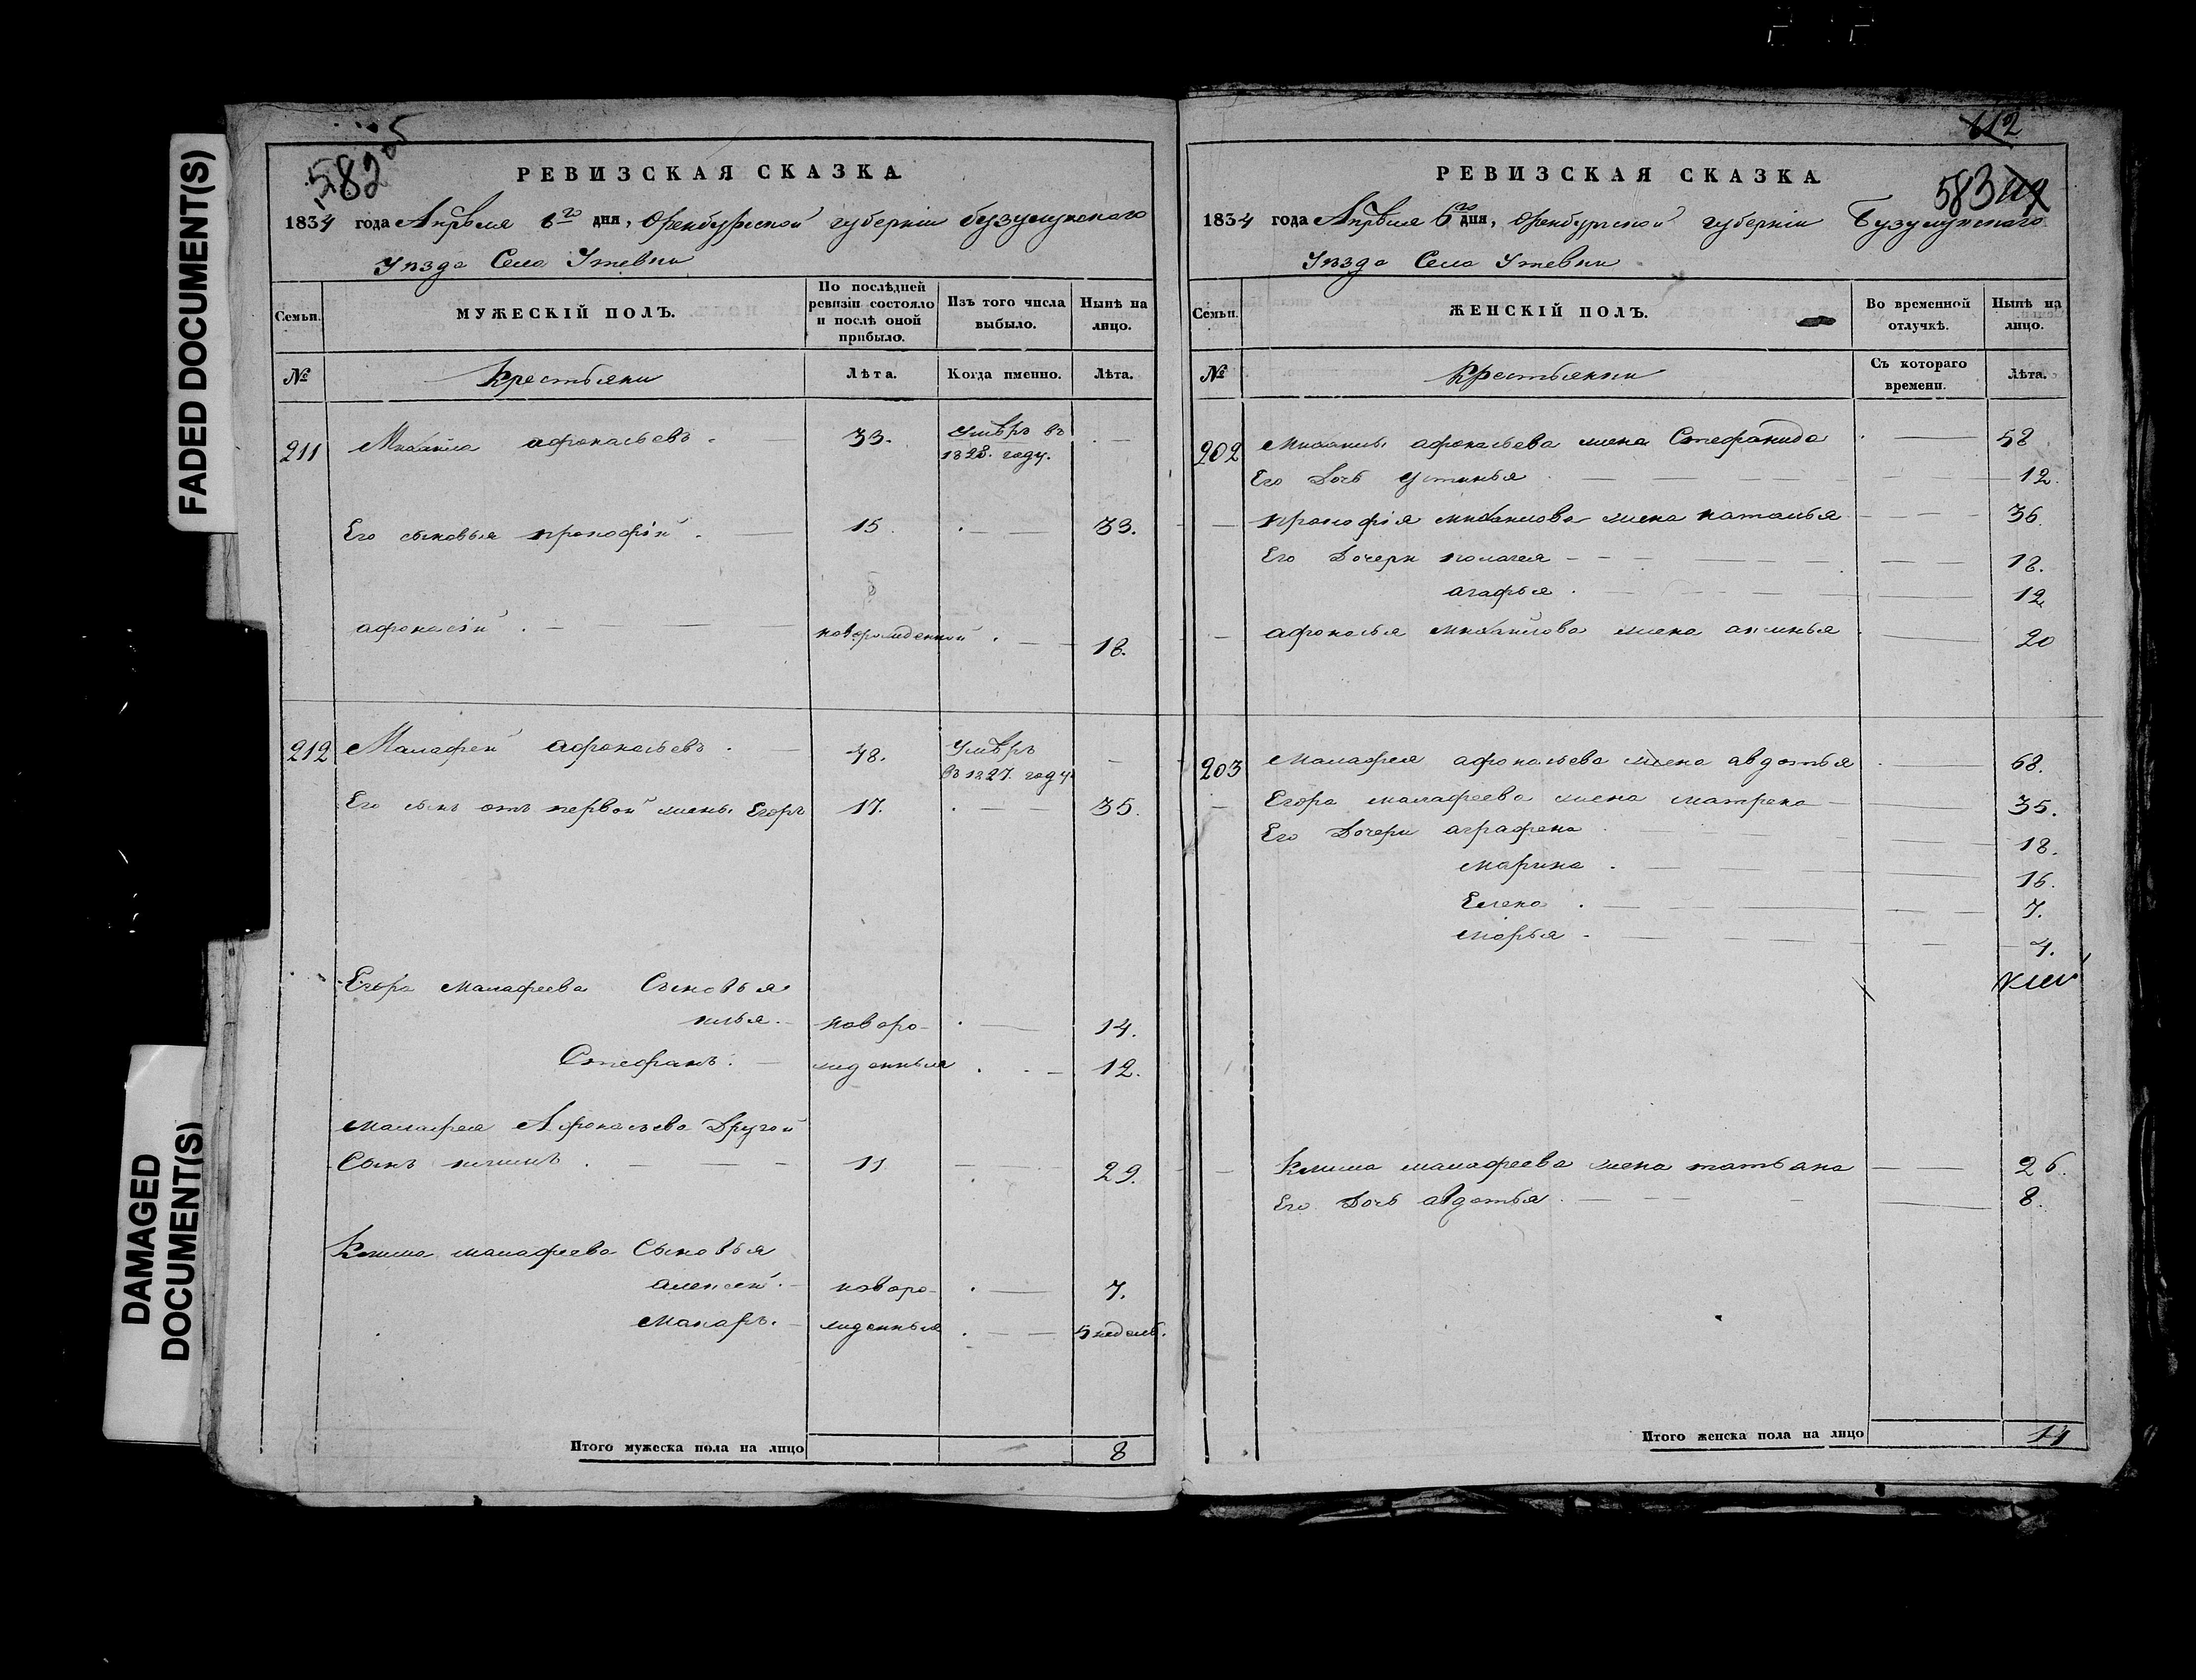 FADED DOCUMENT(S)
DAMAGED
DOCUMENT(S)
582
РЕВИЗСКАЯ СКАЗКА
1834 года Апреля 6го дня, Оренбургской губернiи бузулукского
Уезда Села Утевки
Семьи.
МУЖЕСКIЙ ПОЛЪ.
По послѣдней ревизiи состояло и послѣ оной прибыло.
Изъ того числа выбыло.
Нынѣ на лицо.
№
Крестьяни
Лѣта.
Когда именно.
Лѣта.
211 Михайла афонасьевъ. 33. Умѣръ въ
1828. году.
Его сыновья прокофiй. 15. 33.
афонасiй. новорожденной. 18.
212 Малафей афонасьевъ. 48. Умѣръ
въ 1827. году
Его сынъ отъ первой жены Егоръ 17. 35.
Егора малафеева Сыновья
илья. новоро- 14.
Стефанъ. жденныя 12.
малафея Афонасьева Другой
Сынъ климъ. 11 29.
Клима малафеева Сыновья
алексей. новоро- 7.
Макаръ. жденныя 5 недель.
Итого мужеска пола на лицо 8
112
583
РЕВИЗСКАЯ СКАЗКА
1834 года Апреля 6го дня, Оренбургской губернiи Бузулукского
Уезда Села Утевки
Семьи.
ЖЕНСКIЙ ПОЛЪ.
Во временной отлучкѣ.
Нынѣ на лицо.
№
Крестьянки
Съ котораго времени.
Лѣта.
202 Михаилы афонасьева жена Стефанида 58
Его Дочь Устинья. 12.
прокофiя михаилова жена наталья 36.
Его Дочери полагея 18.
агафья. 12.
афонасья михайлова жена аксинья 20
203 малафея афонасьева жена авдотья 68.
Егора малафеева жена матрена 35.
Его Дочери аграфена 18.
марина. 16.
Елена. 7.
марья. 4.
Клима малафеева жена татьяна 26.
Его Дочь авдотья. 8.
Итого женска пола на лицо 14